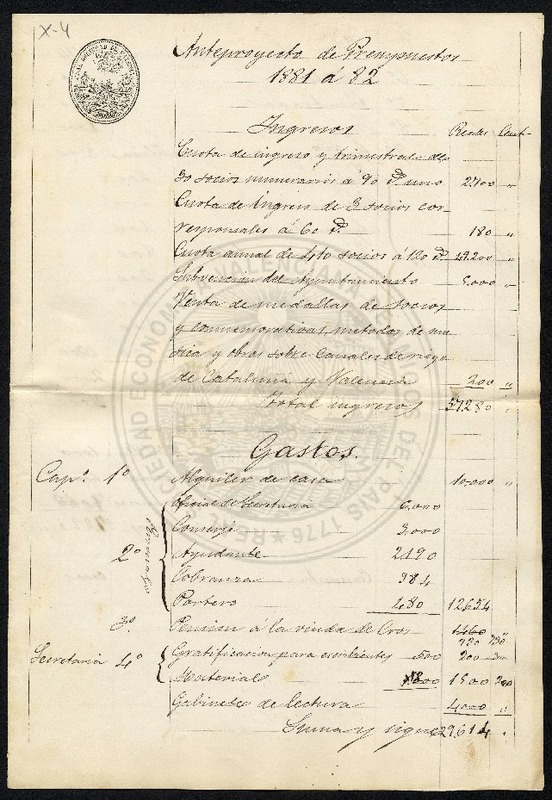 X-4
Anteproyecto de Presupuestos
1881 á 82
Ingresos Reales Cent.
Cuota de ingreso y trimestral de
30 socios numerarios á 90 rs. uno 2700 "
Cuota de ingreso de 3 socios cor-
responsales á 60 rs. 180 "
Cuota annal de 410 socios á 120 rs. 49.200 "
Subvencion del Ayuntamiento 5.000 "
Venta de medallas de socios
y conmemorativas, metodos de mu-
sica y obras sobre Canales de riego
de Cataluña y Valencia 200 "
Total ingresos 57280 "
Gastos.
Capº. 1º Alquiler de casa 10.000 "
Oficial de Secretaria 6.000
Conserje 3.000
2º Ayudante 2190
Cobranza 984
Portero 480 12654
3º Pension á la viuda de Cros 1460
730
Secretaria 4º Gratificacion para escribientes 500 200
Material 1500
Gabinete de lectura 4000 "
Suma y sigue 29.614 "
REAL SOCIEDAD ECONOMICA VALENCIANA AMIGOS DEL PAIS 1776